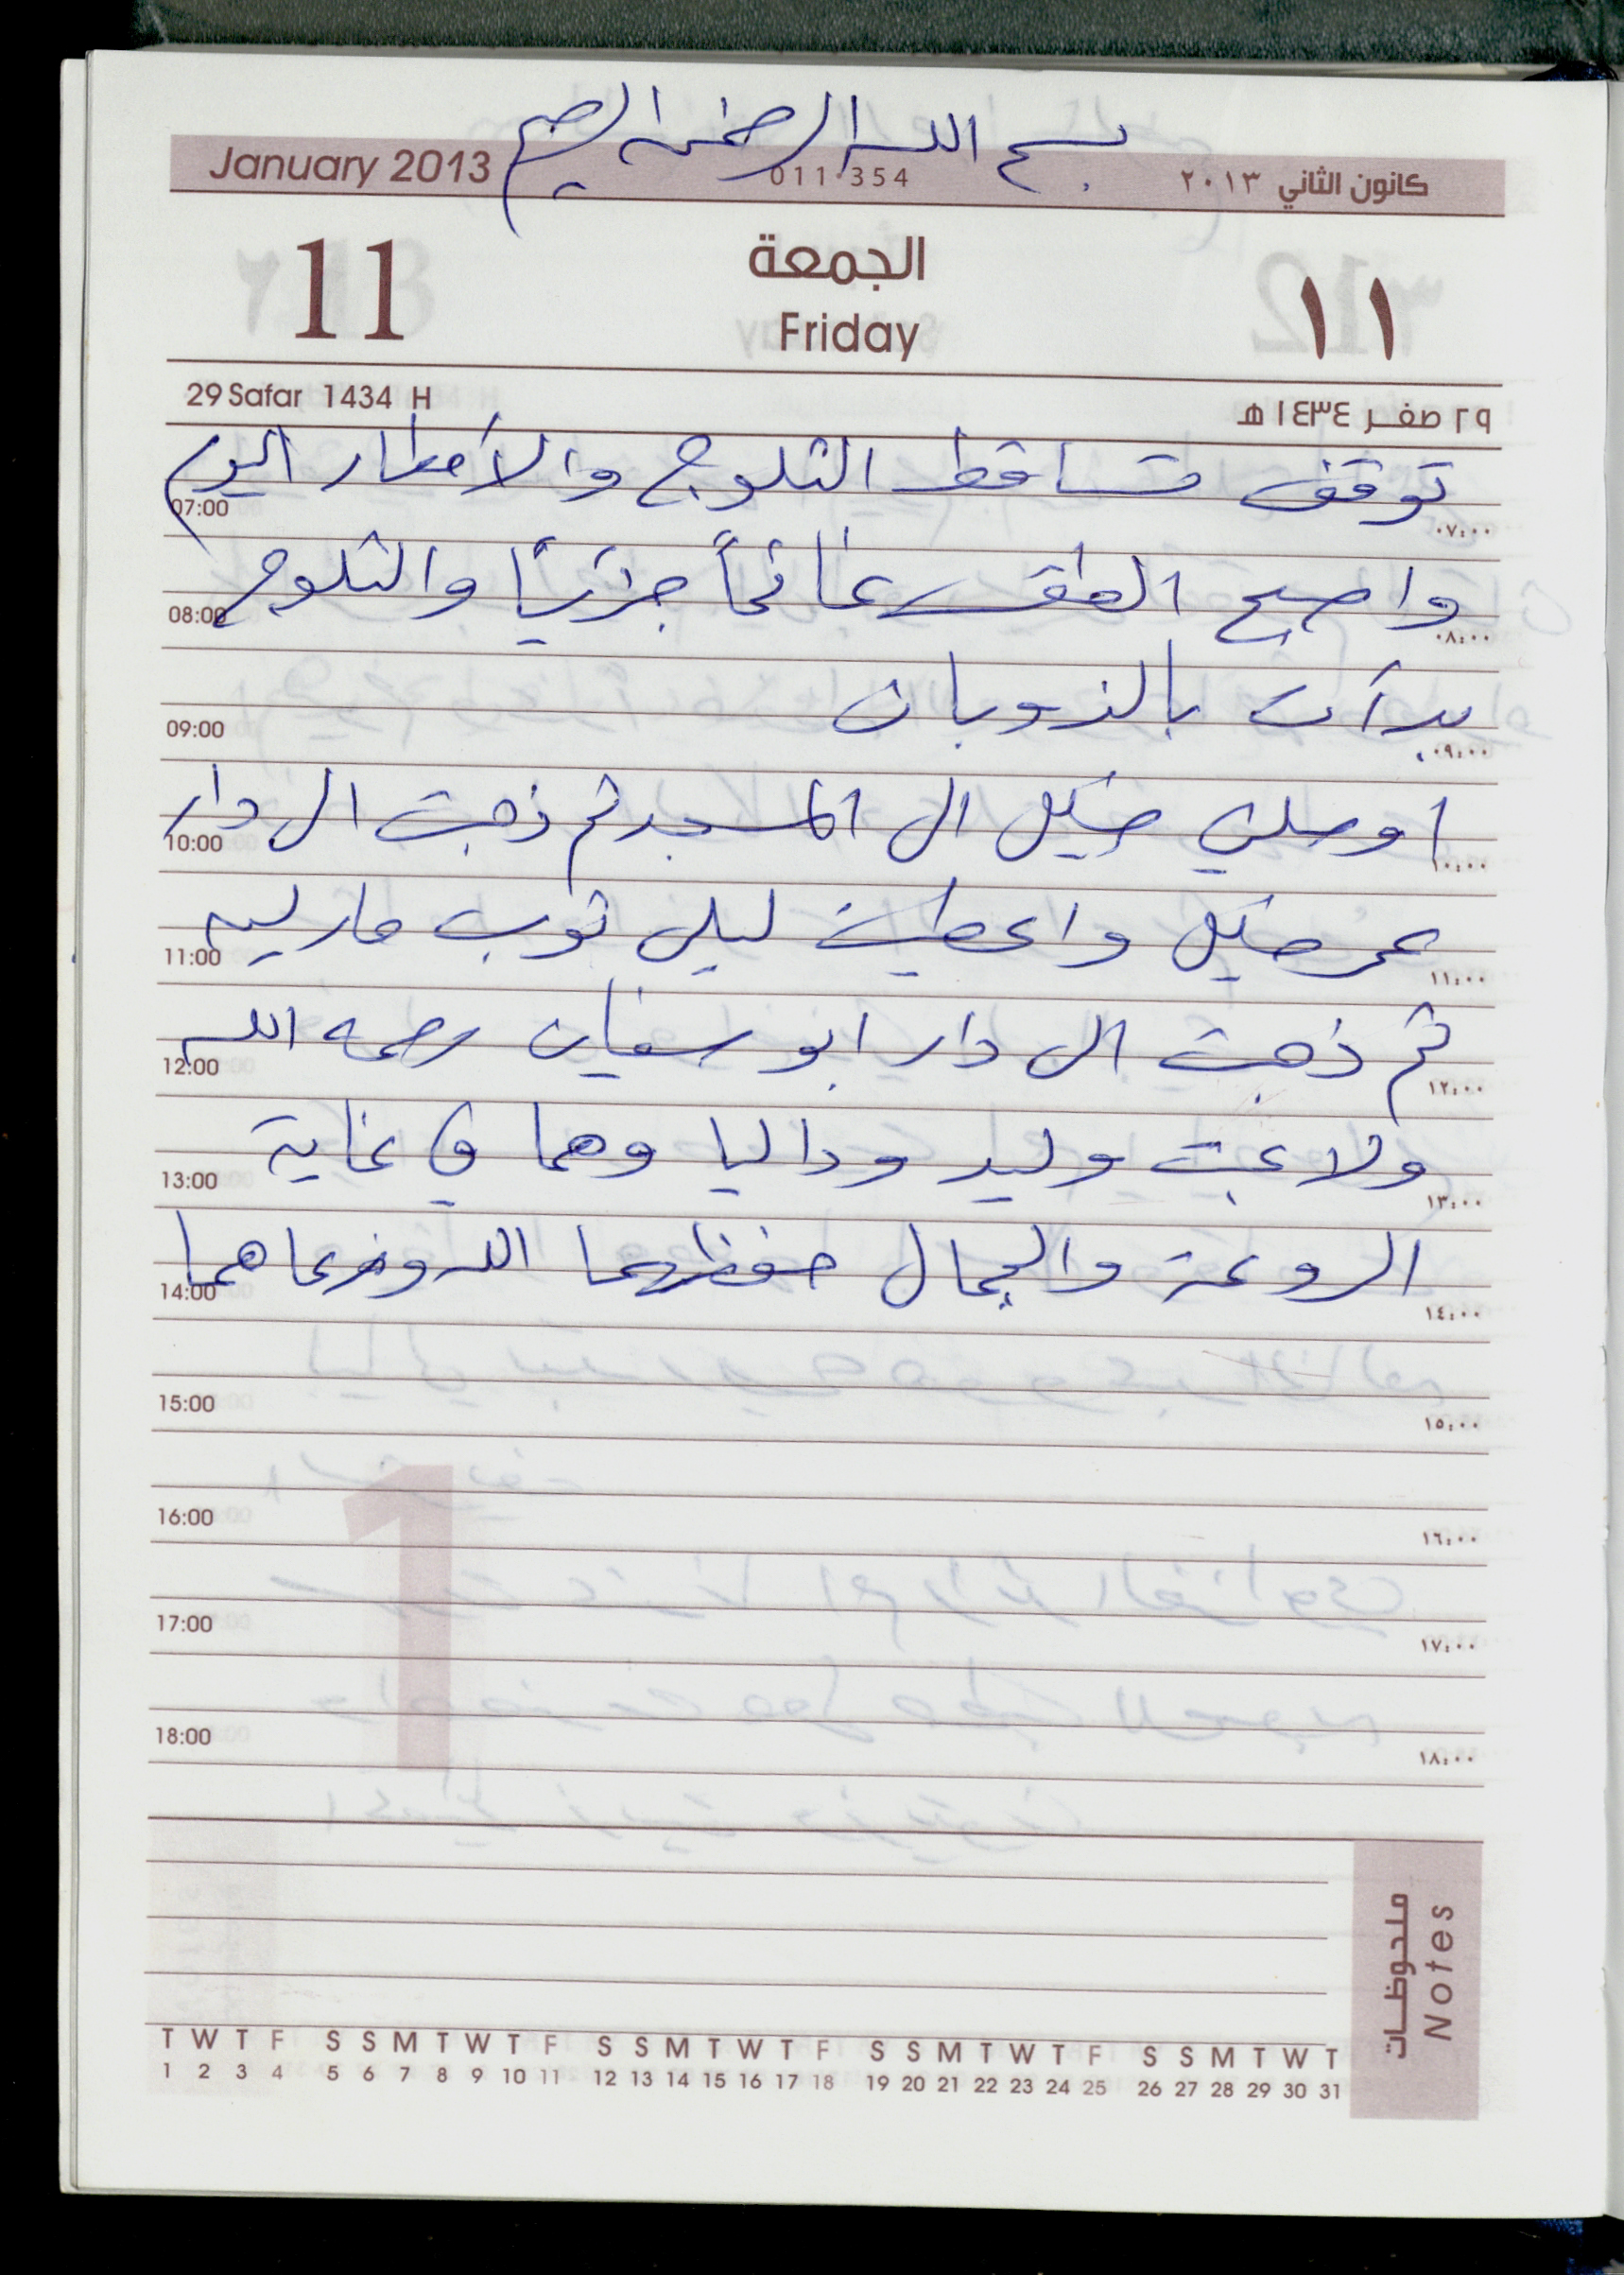 بسم الله الرحمن الرحيم
January 2013 011-354 كانون الثاني ٢٠١٣
11 الجمعة ١١
Friday
29 Safar 1434 H ٢٩ صفر ١٤٣٤ هـ
توقف تساقط الثلوج والأمطار اليوم
07:00 ٠٧:٠٠
واصبح الطقس غائماً جزئياً والثلوج
08:00 ٠٨:٠٠
بدأت بالذوبان
09:00 ٠٩:٠٠
اوصلني الى المسجد ثم ذهبت الى دار
10:00 ١٠:٠٠
عمر واعطيت ليلى ثوب
11:00 ١١:٠٠
ثم ذهبت الى دار ابو سفيان رحمه الله
12:00 ١٢:٠٠
ولاعبت وليد وداليا وهما في غاية
13:00 ١٣:٠٠
الروعة والجمال حفظهما الله ورعاهما
14:00 ١٤:٠٠
15:00 ١٥:٠٠
16:00 ١٦:٠٠
1
17:00 ١٧:٠٠
18:00 ١٨:٠٠
ملحوظات
Notes
T W T F S S M T W T F S S M T W T F S S M T W T F S S M T W T
1 2 3 4 5 6 7 8 9 10 11 12 13 14 15 16 17 18 19 20 21 22 23 24 25 26 27 28 29 30 31